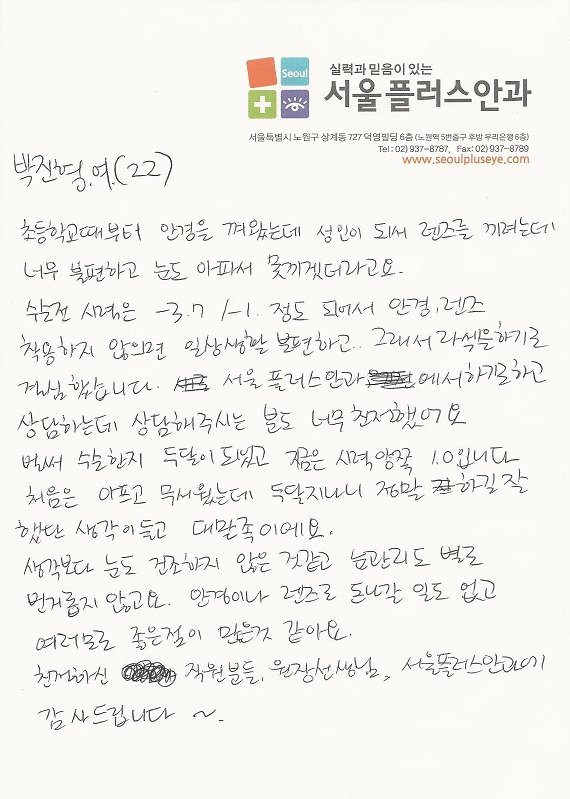 Seoul
실력과 믿음이 있는
서울플러스안과
서울특별시 노원구 상계동 727 덕영빌딩 6층 (노원역 5번출구 후방 우리은행 6층)
Tel : 02) 937-8787, Fax: 02) 937-8789
www.seoulpluseye.com
박진형.여.(22)
초등학교때부터 안경을 껴왔는데 성인이 되서 렌즈를 끼려는데
너무 불편하고 눈도 아파서 못끼겠더라고요.
수술전 시력은 -3.7 / -1. 정도 되어서 안경,렌즈
착용하지 않으면 일상생활 불편하고.. 그래서 라섹을하기로
결심했습니다. 서울플러스안과에서하기로하고
상담하는데 상담해주시는 분도 너무친절했어요
벌써 수술한지 두달이되었고 지금은 시력양쪽 1.0입니다
처음은 아프고 무서웠는데 두달지나니 정말 하길잘
했단 생각이들고 대만족이에요.
생각보다 눈도 건조하지 않은 것같고 눈관리도 별로
번거롭지 않고요. 안경이나 렌즈로 돈나갈 일도 없고
여러모로 좋은점이 많은것 같아요.
친절하신 직원분들, 원장선생님, 서울플러스안과에
감사드립니다 ~.